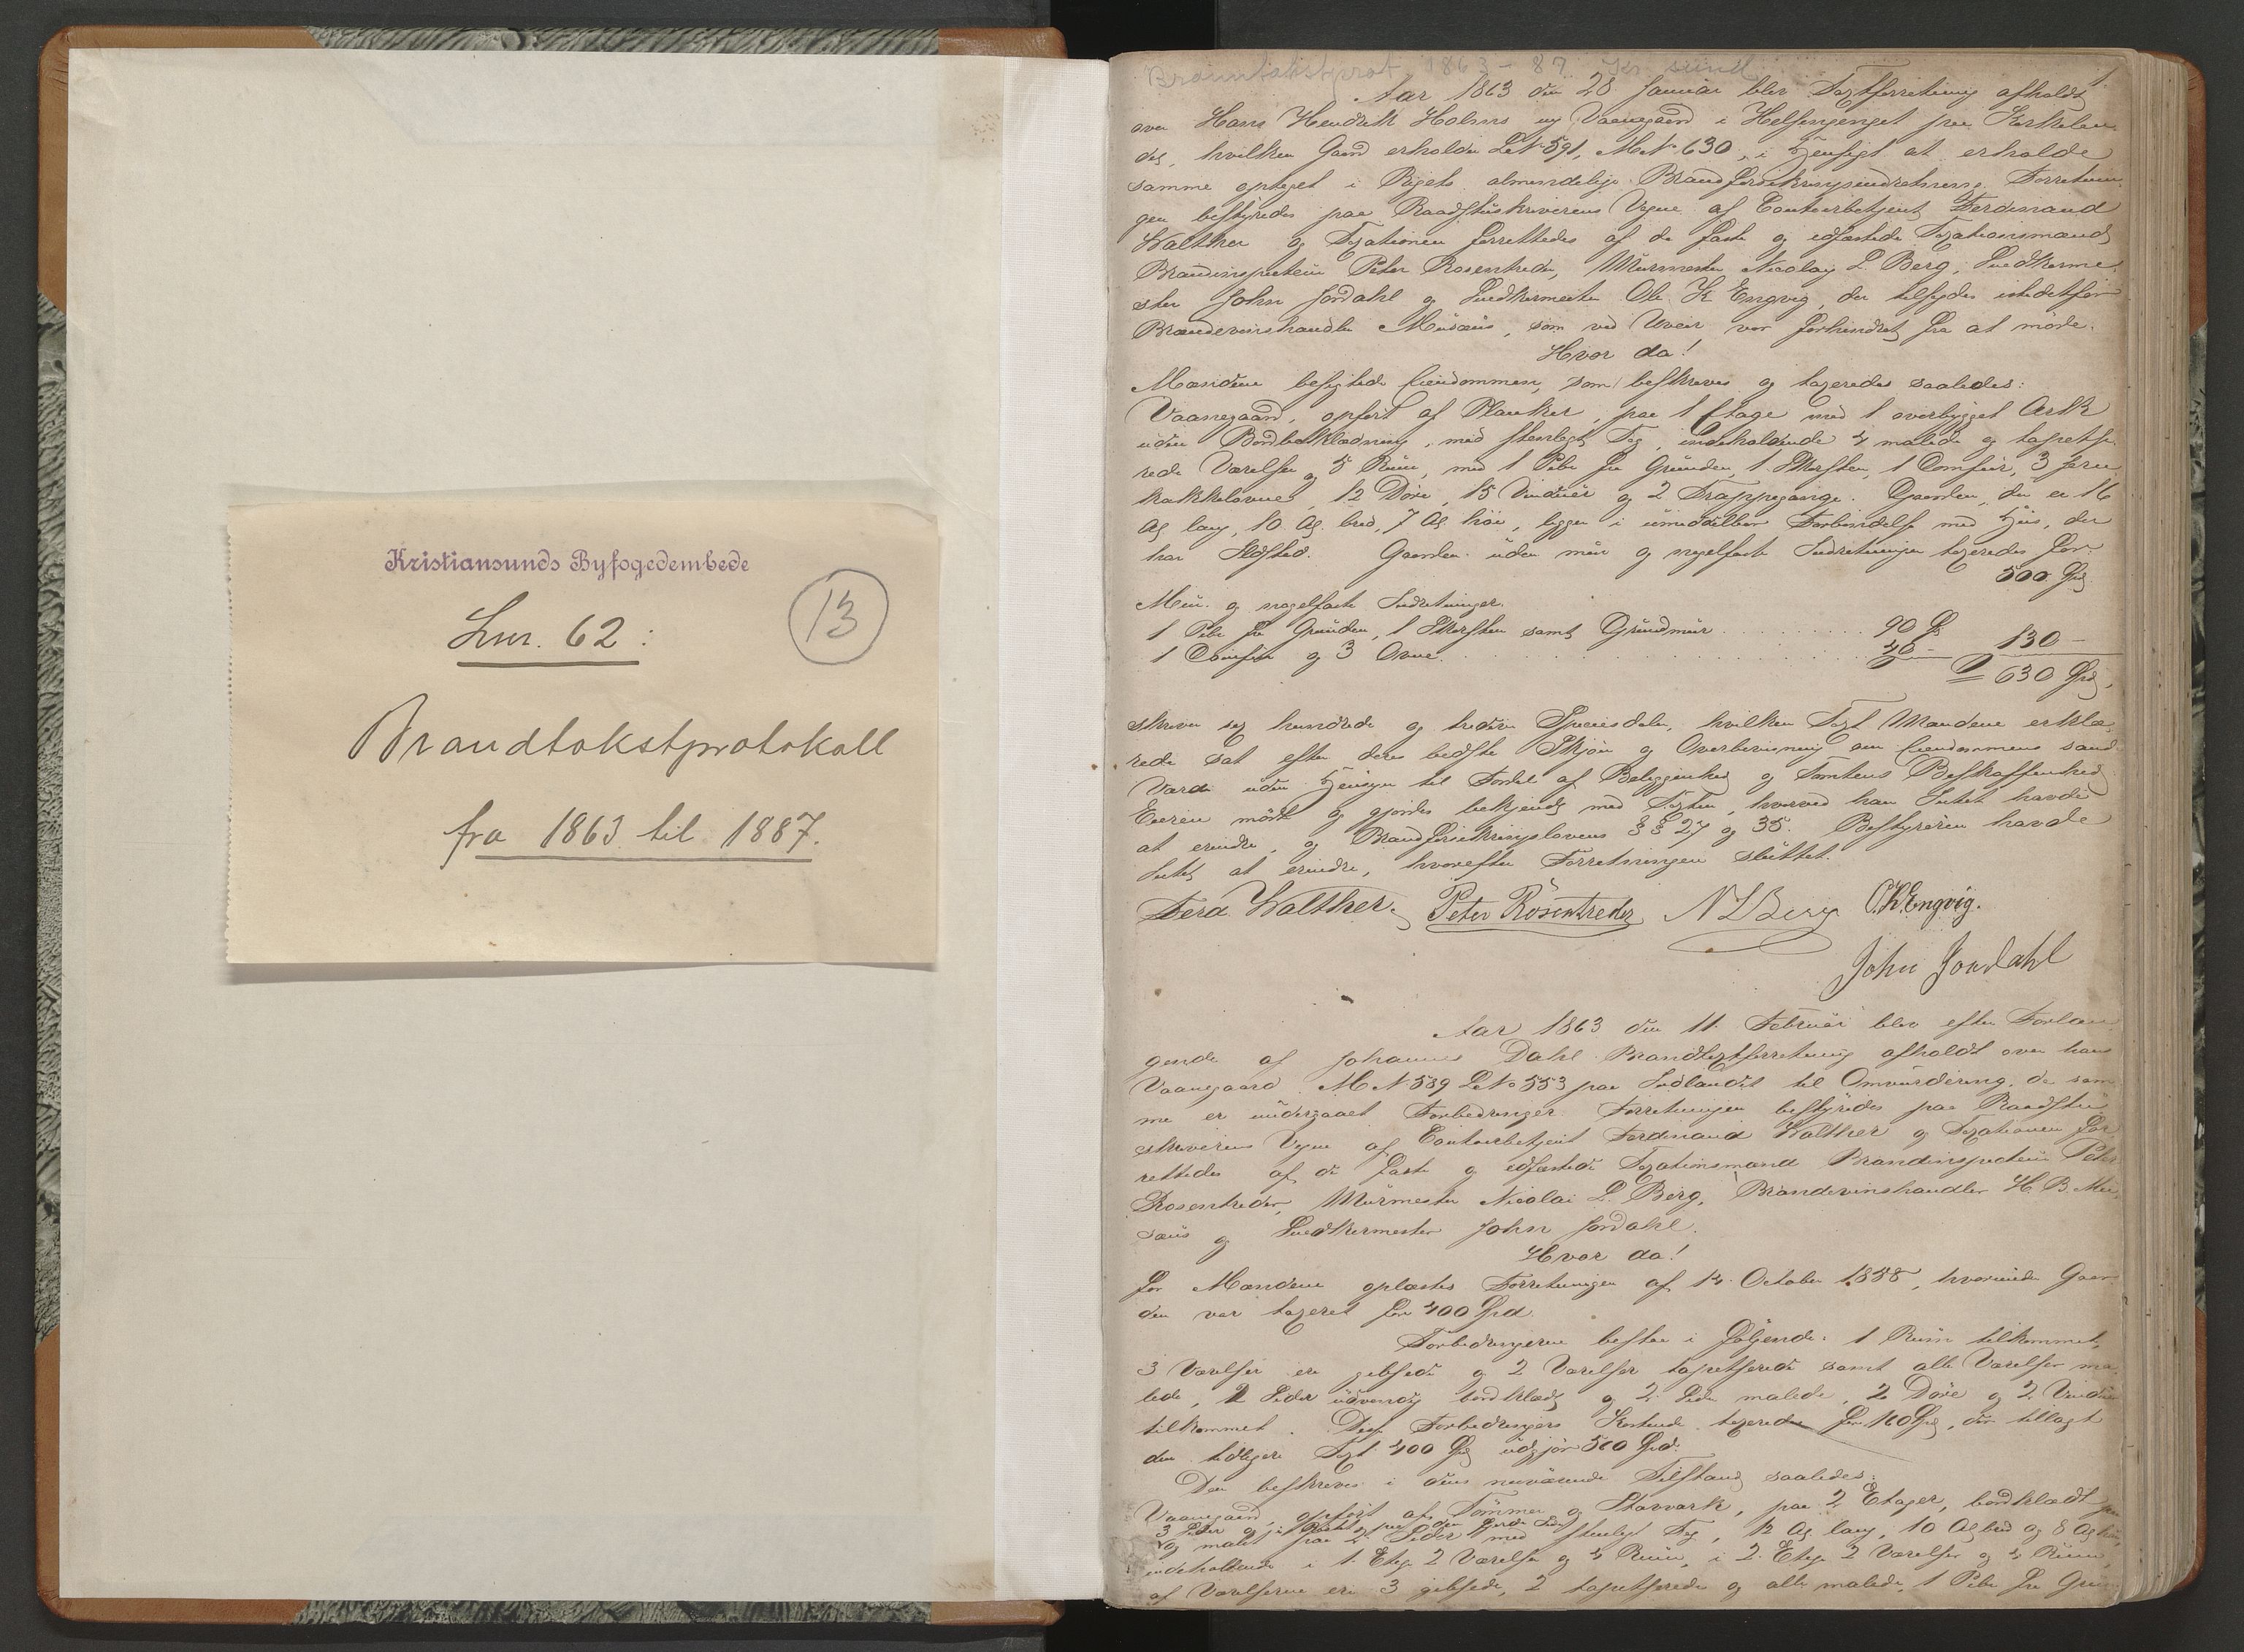 Kristiansunds Byfogedembede
13
Lnr. 62:
Brandtakstprotokoll
fra 1863 til 1887.
Branntakstprot. 1863-87 Kr. sund
1.
Aar 1863 den 28 Januar blev Taxtforretning afholdt
over Hans Hendrik Holms ny Vaanegaard i Helsengenget paa Kirkelan-
det, hvilken Gaard erholder L No 591, M No 630, i Hensigt at erholde
samme optaget i Rigets almindelige Brandforsikringsindretning. Forretnin-
gen bestyredes paa Raadstueskriverens Vegne af Contoirbetjent Ferdinand
Walther og Taxationen forrettedes af de faste og edfæstede Taxationsmænd
Brandinspecteur Peter Rosentreder, Muurmester Nicolay L. Berg, Snedkerme-
ster John Jordahl og Snedkermester Ole K Engvig, der tilsagdes istedetfor
Brændevinshandler Musæus, som ved Uveir var forhindret fra at møde.
Hvor da!
Mændene besigtede Eiendommen, som beskreves og taxeredes saaledes:
Vaanegaard, opført af Planker, paa 1 Etage med 1 overbygget Ark
uden Bordbeklædning, med steenlagt Tag, indeholdende 4 malede og tapetse-
rede Værelser og 5 Rum, med 1 Pibe fra Grunden, 1 Skorsten, 1 Comfur, 3 jern
kakkelovne, 12 Døre, 15 Vinduer og 2 Trappegange. Gaarden, der er 16
Al lang, 10 Al. bred, 7 Al høi, ligger i umiddelbar Forbindelse med Huus, der
har Ildsted. Gaarden uden muur og nagelfaste Indretninger taxeredes for:
500 Spd
Muur- og nagelfaste Indretninger.
1 Pibe fra Grunden, 1 Skorsten samt Grundmuur . . . . . . . . . 90 Sp
1 Comfur og 3 Ovne . . . . . . . . . . 40 - 130 -
630 Spd,
skriver sex hundrede og tredive Speciesdaler, hvilken Taxt Mændene erklæ-
rede sat efter deres bedste Skjøn og Overbeviisning om Eiendommens sande
Værdi uden Hensyn til Fordel af Beliggenhed og Tomtens Beskaffenhed
Eieren mødte og gjordes bekjendt med Taxten, hvorved han Intet havde
at erindre, og Brandforsikringslovens §§ 27 og 35. Bestyreren havde
Intet at erindre, hvorefter Forretningen sluttet.
Ferd. Walther. Peter Rosentreder N L Berg O. K. Engvig.
John Jordahl
Aar 1863 den 11. Februar blev efter Forlan-
gende af Johannes Dahl Brandtaxtforretning afholdt over hans
Vaanegaard M No 589 L No 553 paa Indlandet til Omvurdering, da sam-
me er undergaaet Forbedringer. Forretningen bestyredes paa Raadstue-
skriverens Vegne af Contoirbetjent Ferdinand Walther og Taxationen for-
rettedes af de faste og edfæstede Taxationsmænd Brandinspecteur Peter
Rosentreder, Muurmester Nicolai L. Berg, Brændevinshandler H. B. Mu-
sæus og Snedkermester John Jordahl.
Hvor da!
For Mændene oplæstes Forretningen af 14. October 1858, hvorunder Gaar-
den var taxeret for 400 Spd.
Forbedringerne bestaar i Følgende: 1 Rum tilkommet,
3 Værelser ere gibsede og 2 Værelser tapetserede samt alle Værelser ma-
lede, 2 Sider udvendig bordklædt og 2 Sider malede, 2 Døre og 2 Vinduer
tilkommet. Disse Forbedringers Kostende taxeredes for 160 Spd, der tillagt
den tidligere Taxt 400 Spd udgjør 560 Spd.
Den beskreves i dens nuværende Tilstand saaledes:
Vaanegaard, opført af Tømmer og Stavværk, paa 2 Etager, bordklædt paa
3 Sider og paa den fjerde Side
og malet paa 2 Sider med steenlagt Tag, 12 Al lang, 10 Al bred og 8 Al høi,
indeholdende i 1. Etage 2 Værelser og 4 Rum, i 2. Etage 2 Værelser og 4 Rum,
af Værelserne ere 3 gibsede, 2 tapetserede og alle malede, 1 Pibe fra Grun-